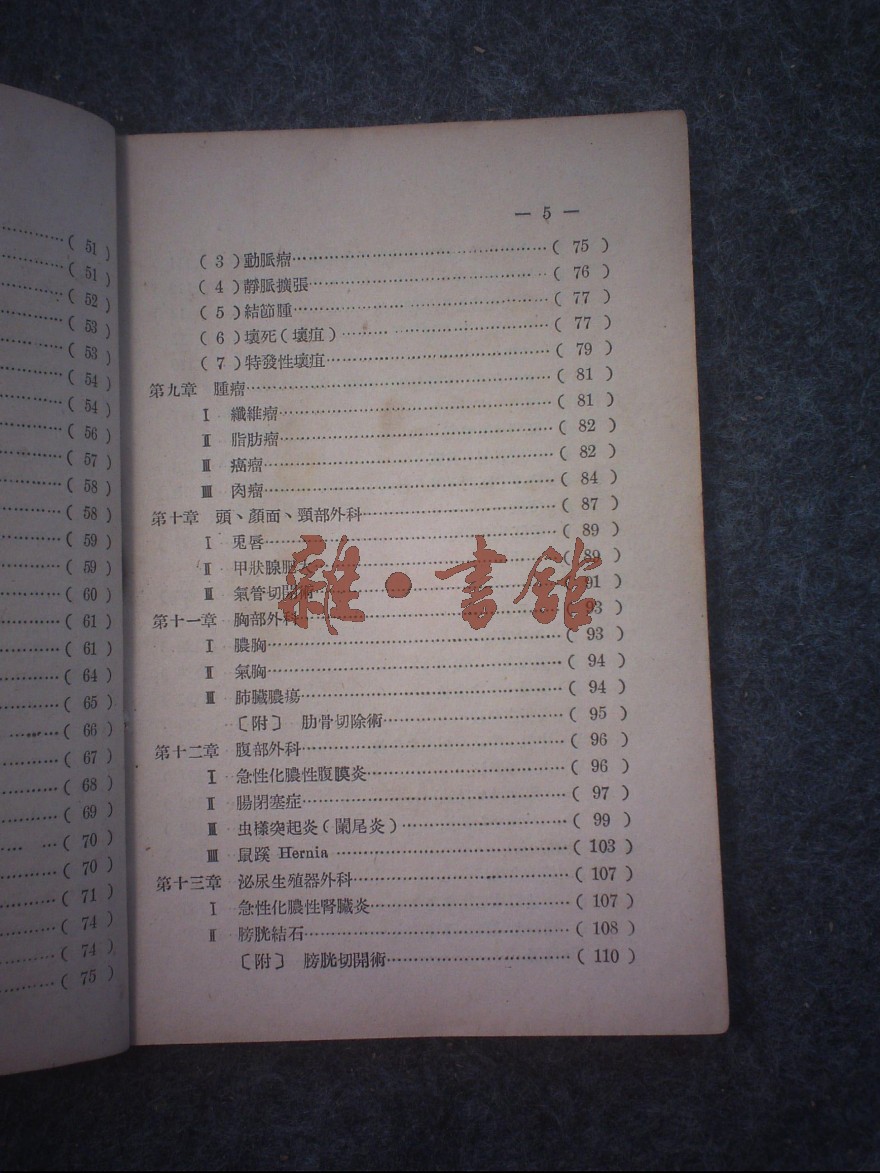 ( 51 )
( 51 )
( 52 )
( 53 )
( 53 )
( 54 )
( 54 )
( 56 )
( 57 )
( 58 )
( 58 )
( 59 )
( 59 )
( 60 )
( 61 )
( 61 )
( 64 )
( 65 )
( 66 )
( 67 )
( 68 )
( 69 )
( 70 )
( 70 )
( 71 )
( 74 )
( 74 )
( 75 )
— 5 —
( 3 )動脈瘤……( 75 )
( 4 )靜脈擴張……( 76 )
( 5 )結節腫……( 77 )
( 6 )壞死(壞疽)……( 77 )
( 7 )特發性壞疽……( 79 )
第九章 腫瘤……( 81 )
Ⅰ 纖維瘤……( 81 )
Ⅱ 脂肪瘤……( 82 )
Ⅲ 癌瘤……( 82 )
IIII 肉瘤……( 84 )
第十章 頭、顏面、頸部外科……( 87 )
Ⅰ 兎唇……( 89 )
Ⅱ 甲狀腺腫大……( 89 )
Ⅲ 氣管切開術……( 91 )
第十一章 胸部外科……( 93 )
Ⅰ 膿胸……( 93 )
Ⅱ 氣胸……( 94 )
Ⅲ 肺臟膿瘍……( 94 )
〔附〕 肋骨切除術……( 95 )
第十二章 腹部外科……( 96 )
Ⅰ 急性化膿性腹膜炎……( 96 )
Ⅱ 腸閉塞症……( 97 )
Ⅲ 虫樣突起炎(闌尾炎)……( 99 )
IIII 鼠蹊 Hernia……( 103 )
第十三章 泌尿生殖器外科……( 107 )
Ⅰ 急性化膿性腎臟炎……( 107 )
Ⅱ 膀胱結石……( 108 )
〔附〕 膀胱切開術……( 110 )
雜·書館